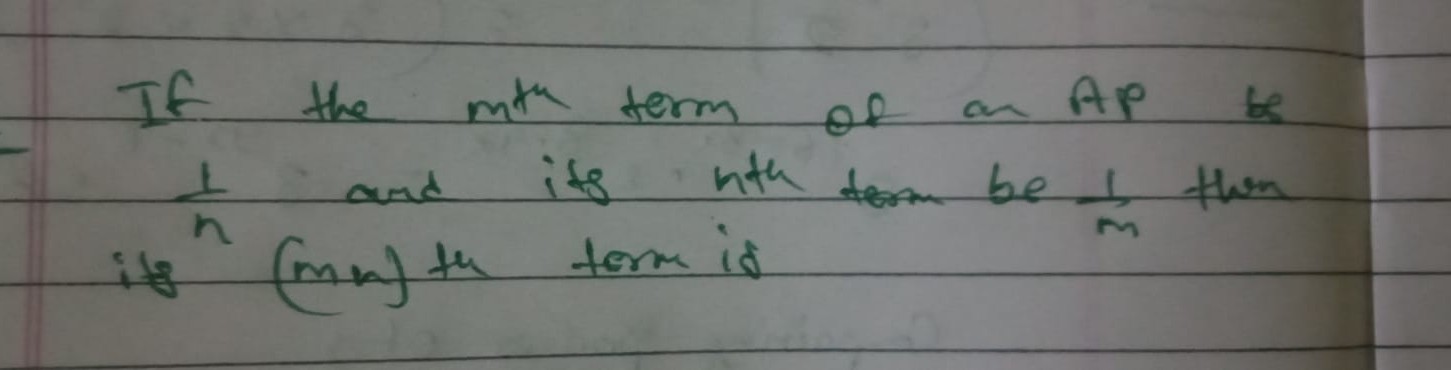 If the mth term of an AP be
1/n and its nth term be 1/m then
its (mn) th term is